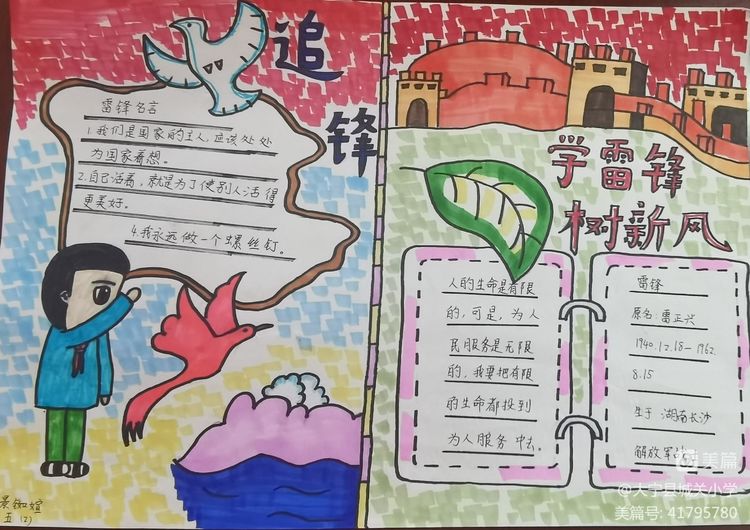 追
锋
雷锋名言
1.我们是国家的主人,应该处处
为国家着想。
2.自己活着,就是为了使别人活得
更美好。
4.我永远做一个螺丝钉。
五(2)
学雷锋
树新风
人的生命是有限
的,可是,为人
民服务是无限
的,我要把有限
的生命都投到
为人服务中去。
雷锋
原名:雷正兴
1940.12.18—1962.
8.15
生于湖南长沙
解放军
美篇
@大宁县城关小学
美篇号: 41795780